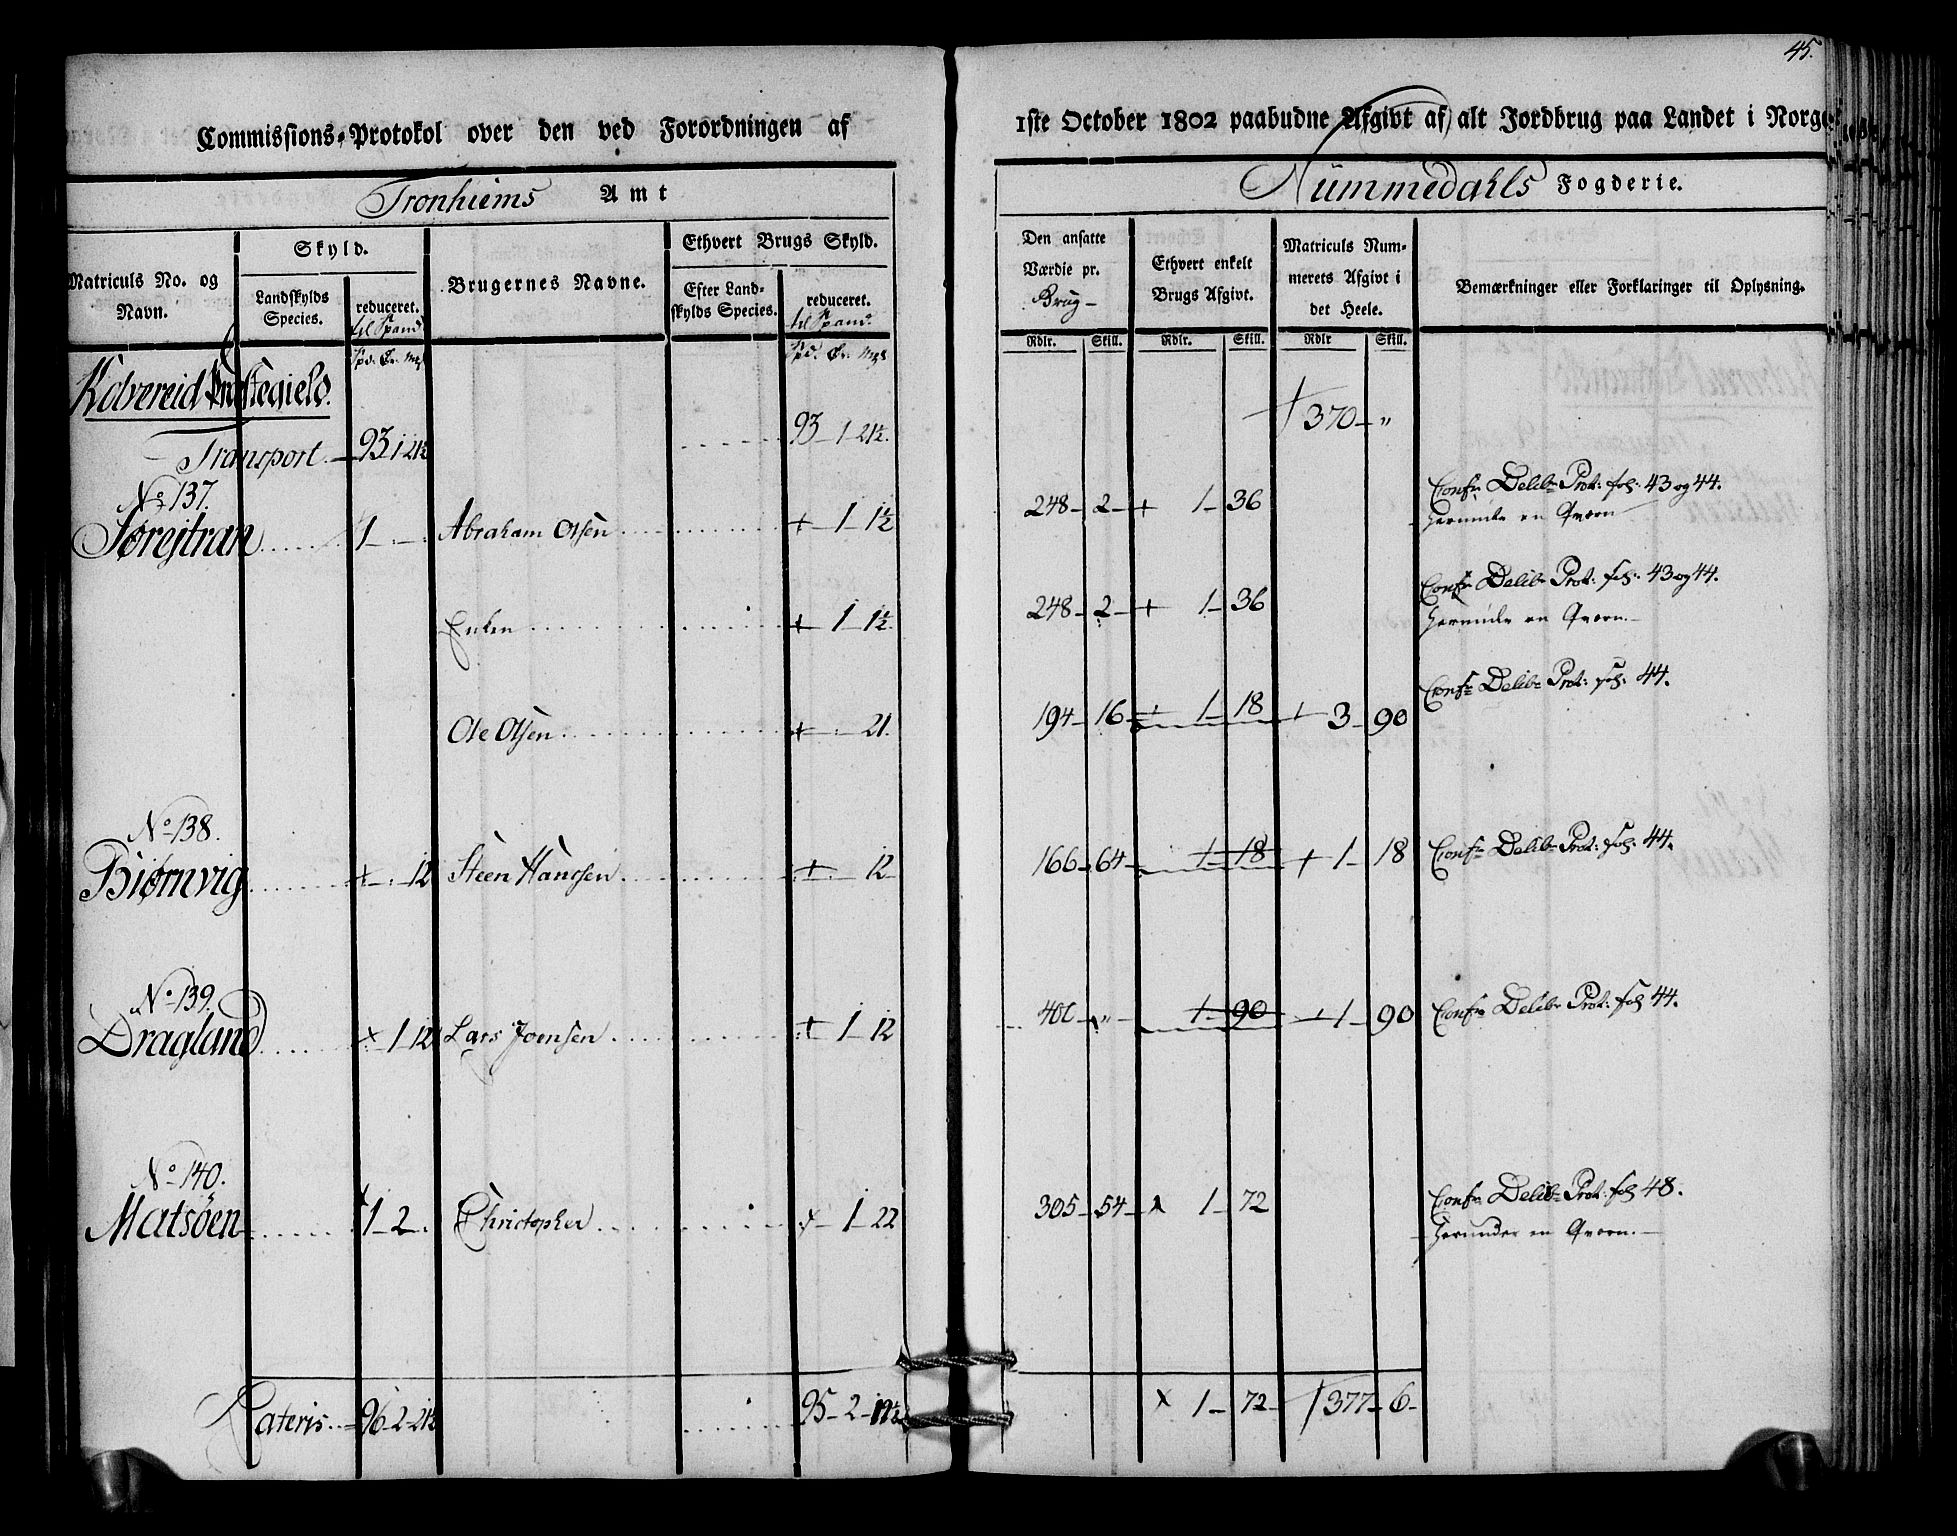 45.
Commissions-Protokol over den ved Forordningen af
1ste October 1802 paabudne Afgivt af alt Jordbrug paa Landet i Norge
Tronhiems Amt
Nummedahls Fogderie.
Matriculs No. og Navn.
Skyld.
Landskylds Species.
reduceret.
til Spand
Brugernes Navne.
Ethvert Brugs Skyld.
Efter Landskylds Species.
reduceret.
til Spand.
Den ansatte Værdie pr. Brug
Ethvert enkelt Brugs Afgivt.
Matriculs Nummerets Afgivt i det Heele.
Bemærkninger eller Forklaringer til Oplysning.
Rdlr. Skill. Rdlr. Skill. Rdlr Skill.
Kolvereid Præstegield.
Transport. 93 1 21½ 93 1 21½. 370 "
No 137.
Sørejtran 1 Abraham Olsen + 1 1½ 248 2 + 1 36 Confr Delib Prot: fol: 43 og 44.
herunder en Qvern
Enken + 1 1½ 248 2 + 1 36 Confr Delib Prot: fol: 43 og 44.
herunder en Qvern.
Ole Olsen + 21. 194 16 + 1 18 + 3 90 Confr Delib Prot: fol: 44.
No 138.
Biørnvig + 12 Steen Hanssen + 12 166 64 + 18 + 1 18 Confr Delib Prot: fol: 44.
No 139.
Dragland x 1 12 Lars Joensen + 1 12 " + 90 + 1 90 Confr Delib Prot: fol 44.
No 140.
Matsöen 1 2. Christopher x 1 22 305 54 x 1 72 Confr Delib Prot: fol 48.
herunder en Qvern.
Lateris 96 2 21½ 95 2 x 1 72 377 6